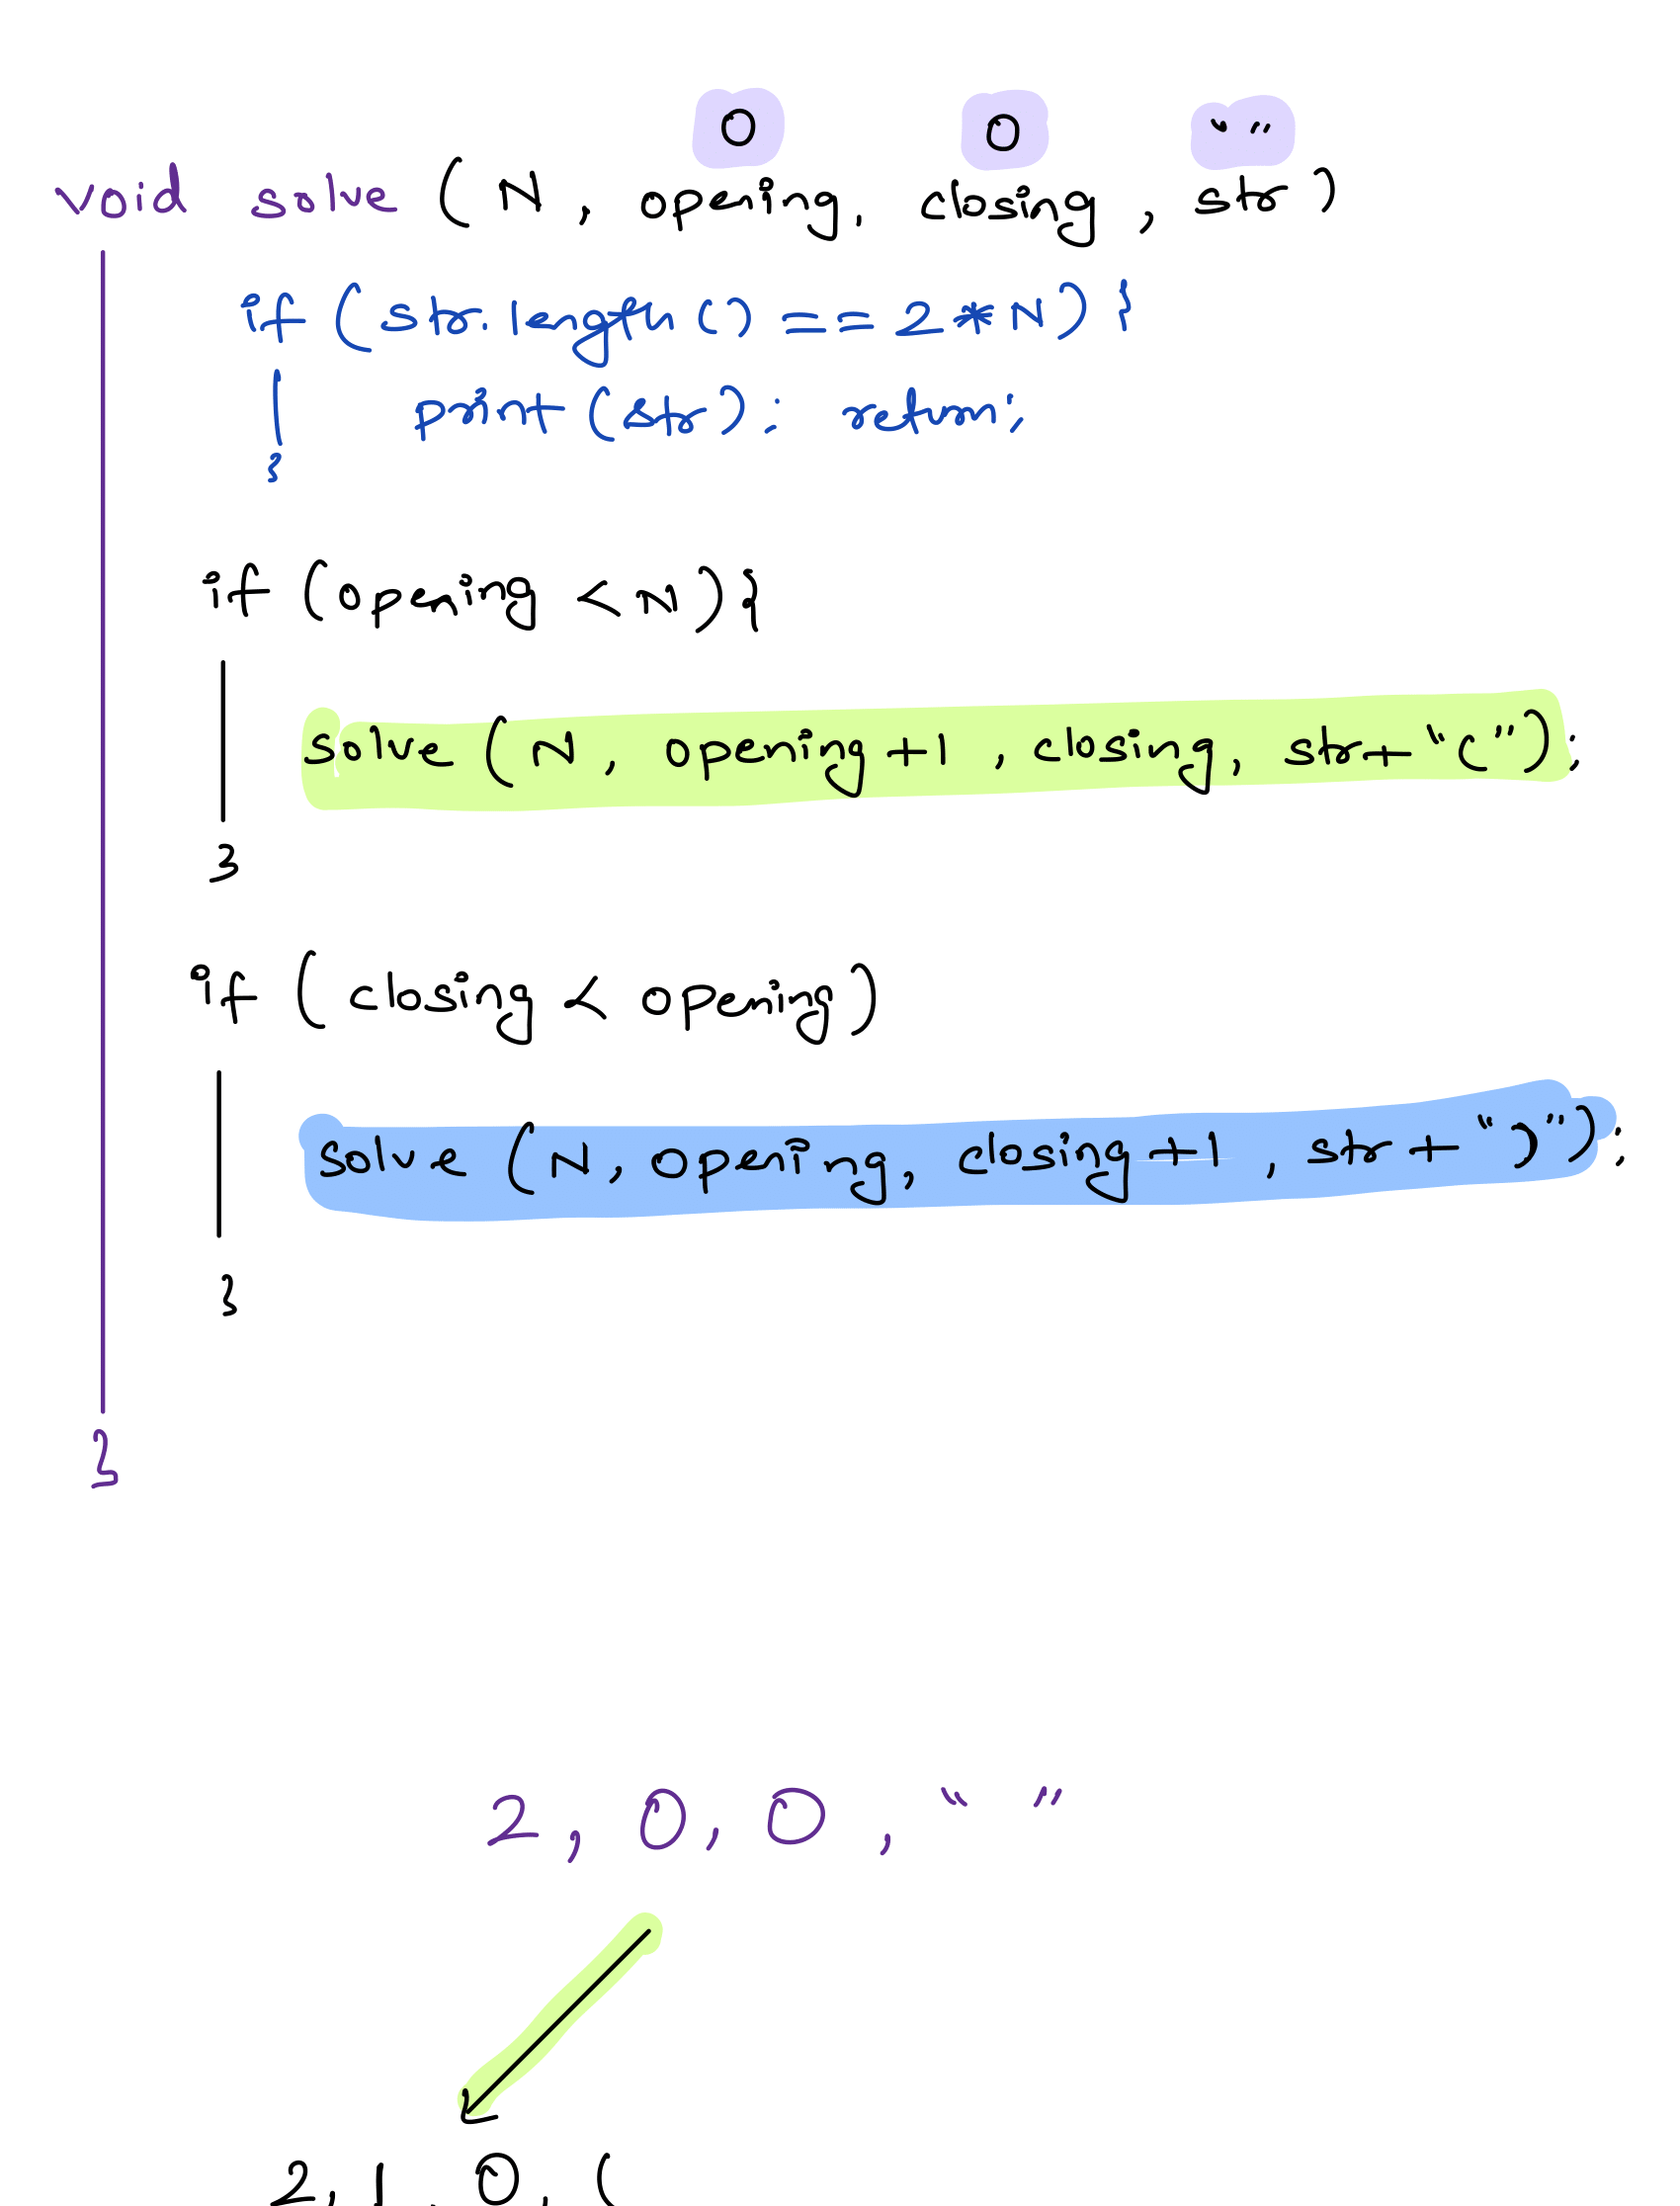 0 0 “ ”
void solve ( N , opening, closing , str )
if ( str.length () == 2 * N ) {
print (str); return;
}
if (opening < N ) {
solve ( N , opening+1 , closing, str+"(" );
}
if ( closing < opening )
solve ( N, opening, closing+1 , str + ")" );
}
}
2, 0, 0 , “ ”
2, 1, 0, (